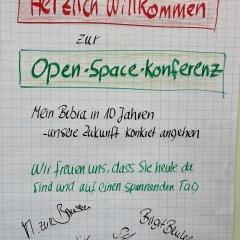 Herzlich Willkommen
zur
Open-Space-Konferenz
Mein Bebra in 10 Jahren
-unsere Zukunft konkret angehen
Wir freuen uns, dass Sie heute da
sind und auf einen spannenden Tag